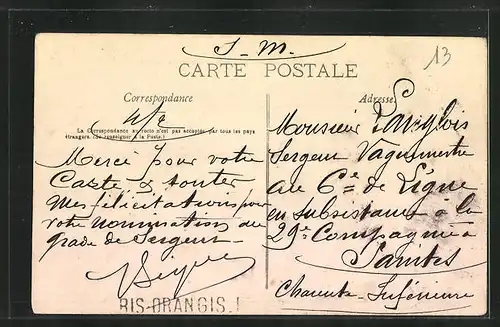 S. M.
13
CARTE POSTALE
Correspondance
Adresse
La Correspondance au recto n'est pas acceptée par tous les pays
étrangers. (Se renseigner à la Poste.)
Merci pour votre
Carte & toutes
mes félicitations pour
votre nomination au
grade de Sergent
Monsieur Langlois
Sergent Vaguemestre
au 6e de Ligne
en subsistance à la
29e Compagnie
Saintes
Charente-Inférieure
RIS-ORANGIS